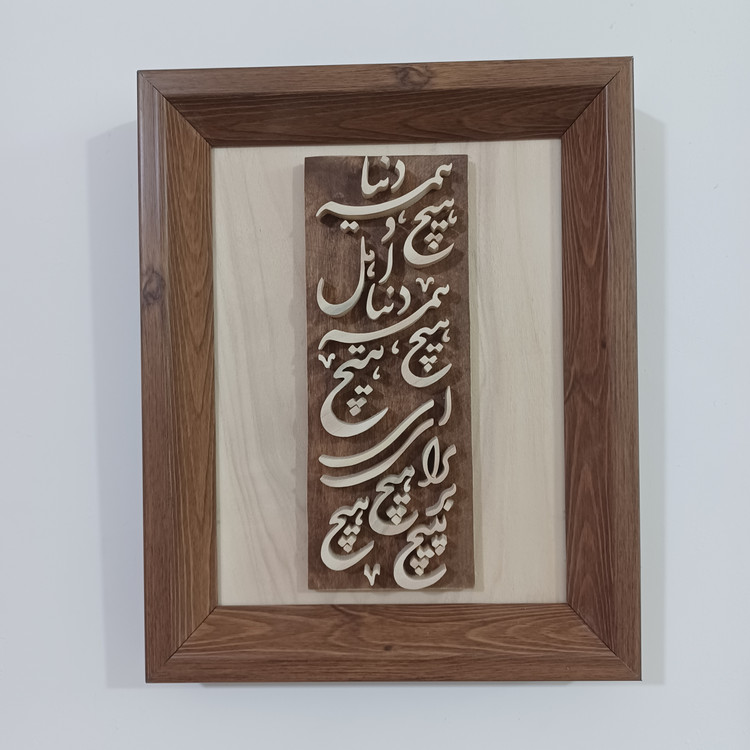 دنیا همه هیچ
و اهل دنیا همه هیچ
ای هیچ
برای هیچ
بر هیچ مپیچ